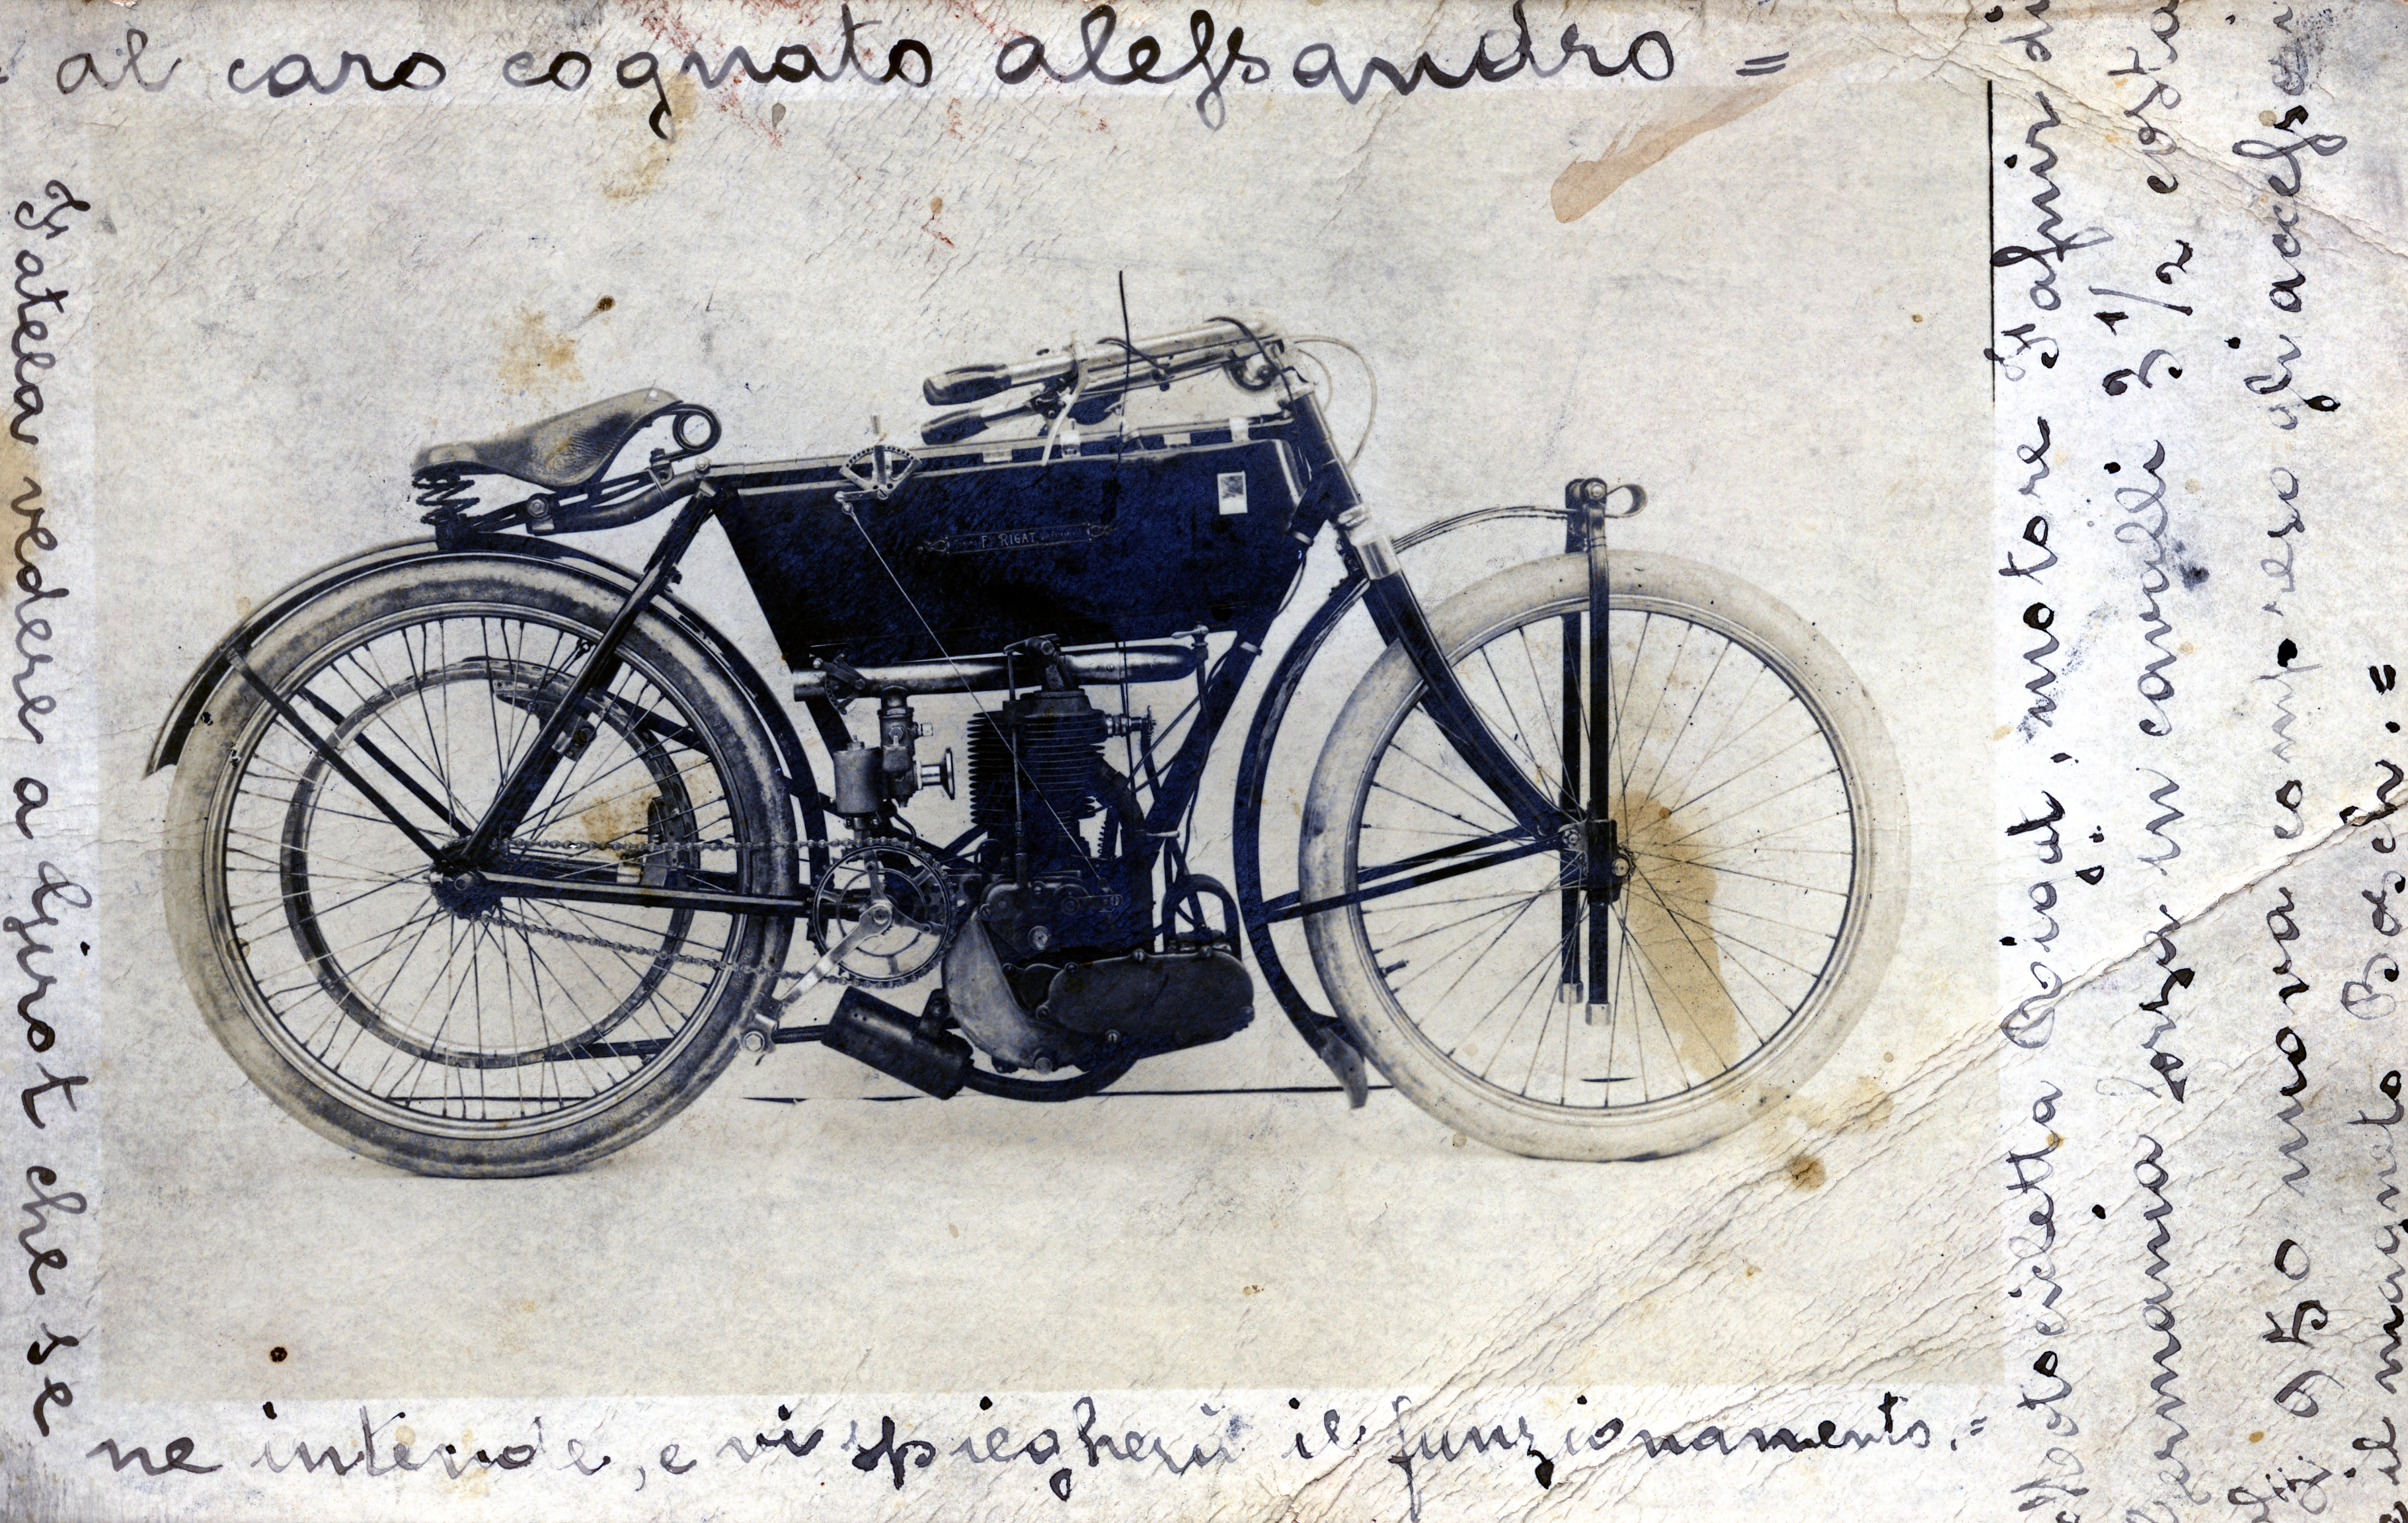 = al caro cognato alessandro =
Fatela vedere a Girot che se
ne intende, e vi spiegherà il funzionamento. =
F. RIGAT
Motocicletta Rigat, motore Fafnir di
Germania forza in cavalli 3 1/2 costa
950 nuova compreso gli accessori
e il magneto Bosch. =